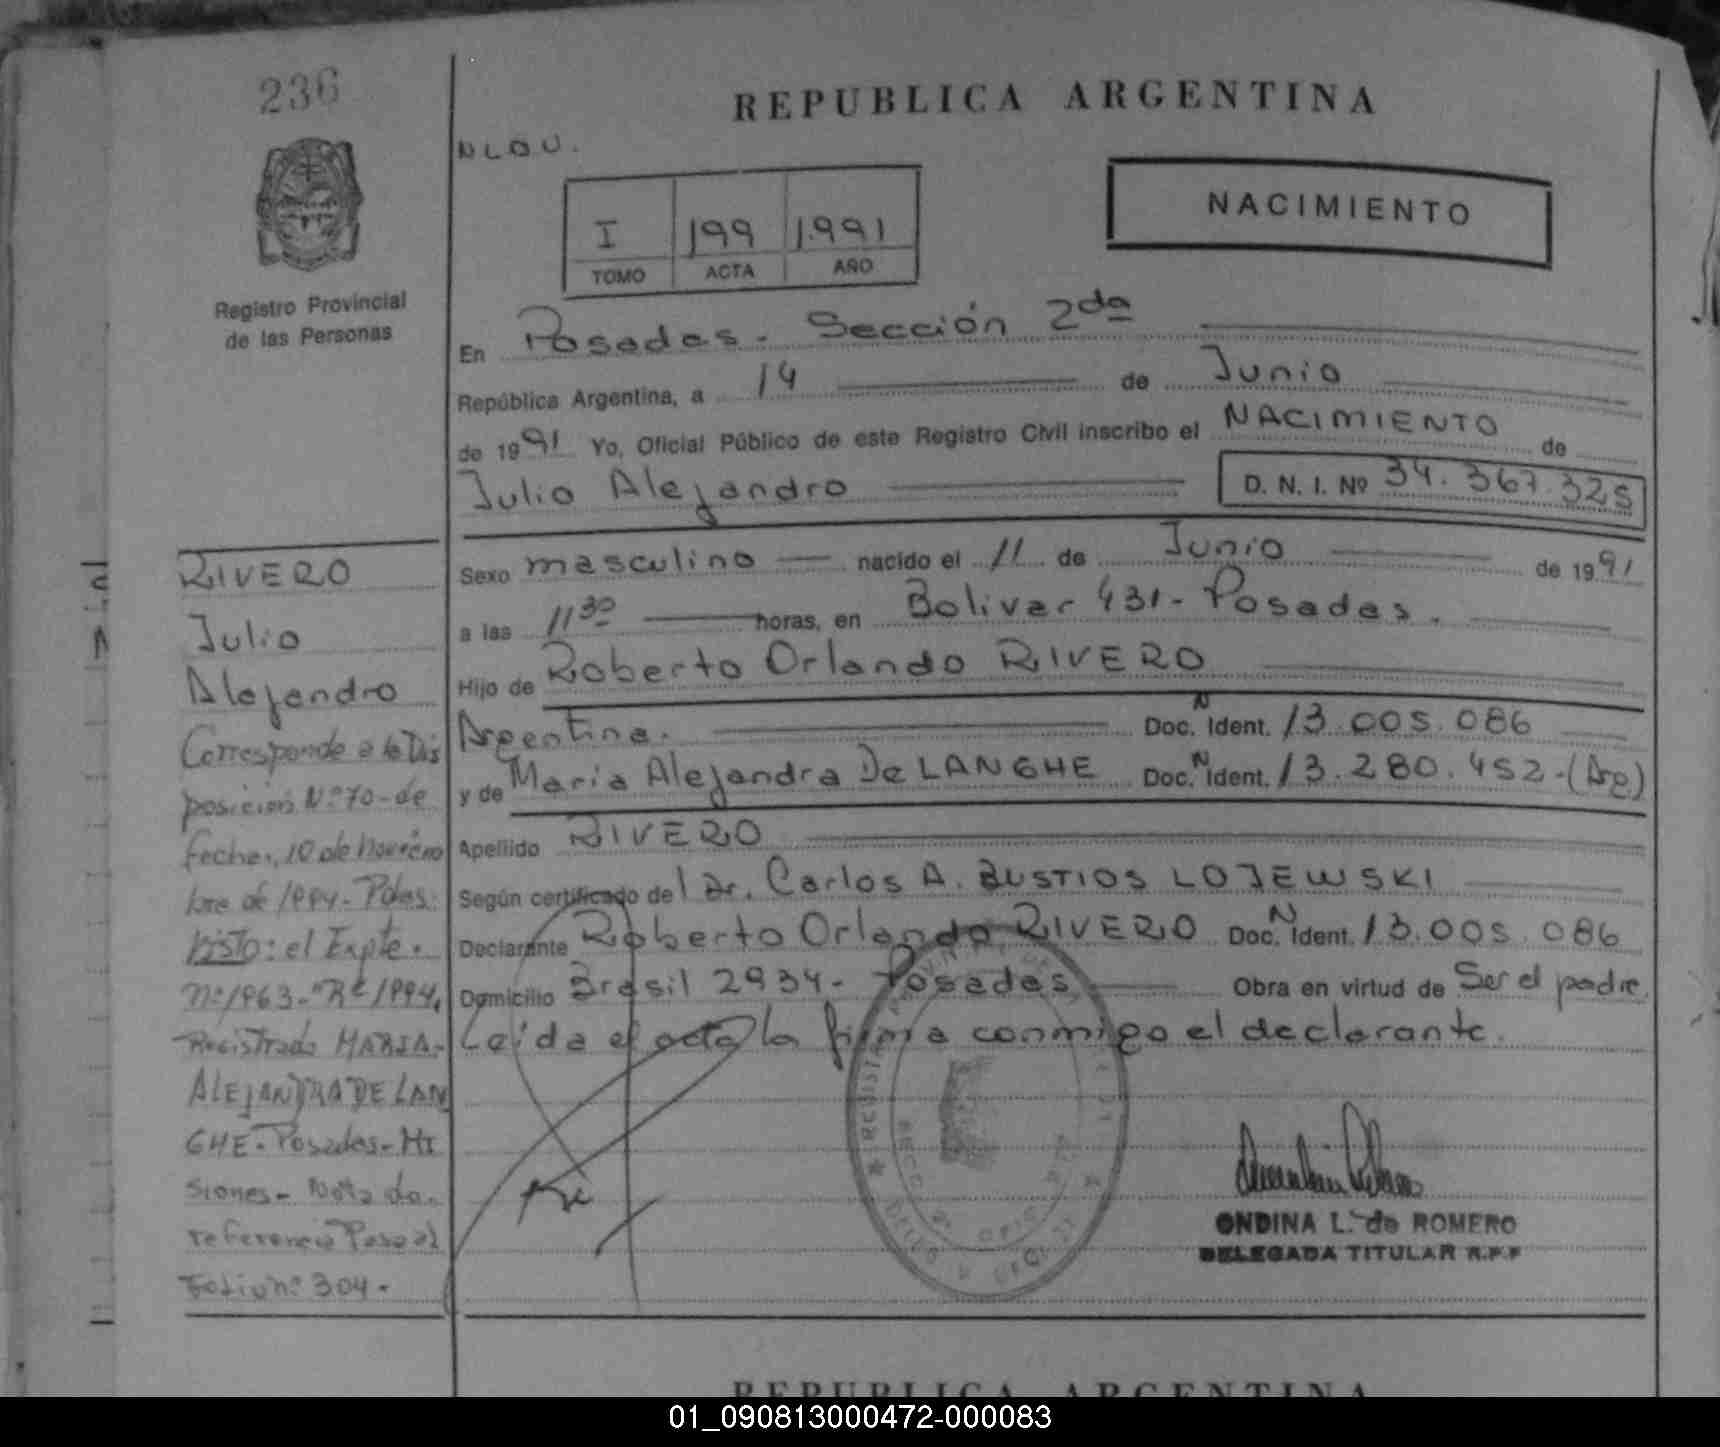 236
REPUBLICA ARGENTINA
NLOU.
NACIMIENTO
I 199 1.991
TOMO ACTA AÑO
Registro Provincial
de las Personas
En Posadas. Sección 2da
República Argentina, a 14 de Junio
de 1991 Yo, Oficial Público de este Registro Civil inscribo el NACIMIENTO de
Julio Alejandro D. N. I. Nº 34.367.325
Sexo masculino nacido el 11 de Junio de 1991
a las 11 30 horas, en Bolivar 431- Posadas.
Hijo de Roberto Orlando RIVERO
Argentina. Doc. N Ident. 13.005.086
y de Maria Alejandra De LANGHE Doc. N Ident. 13.280.452-(Arg)
Apellido RIVERO
Según certificado del Dr. Carlos A. BUSTIOS LOJEWSKI
Declarante Roberto Orlando RIVERO Doc. N Ident. 13.005.086
Domicilio Brasil 2934- Posadas Obra en virtud de Ser el padre.
Leida el acta la firma conmigo el declarante.
RIVERO
Julio
Alejandro
Corresponde a la Dis
posición Nº 70-de
fecha, 10 de noviem
bre de 1994- Pdas:
Visto: el Expte.
nº 1963-"R" 1994,
Registrado MARIA-
ALEJANDRA DE LAN
GHE-Posadas-Mi
siones- Nota de
referencia Pasa al
Folio nº 304-
ONDINA L. de ROMERO
DELEGADA TITULAR R.P.P
REPUBLICA ARGENTINA
01_090813000472-000083